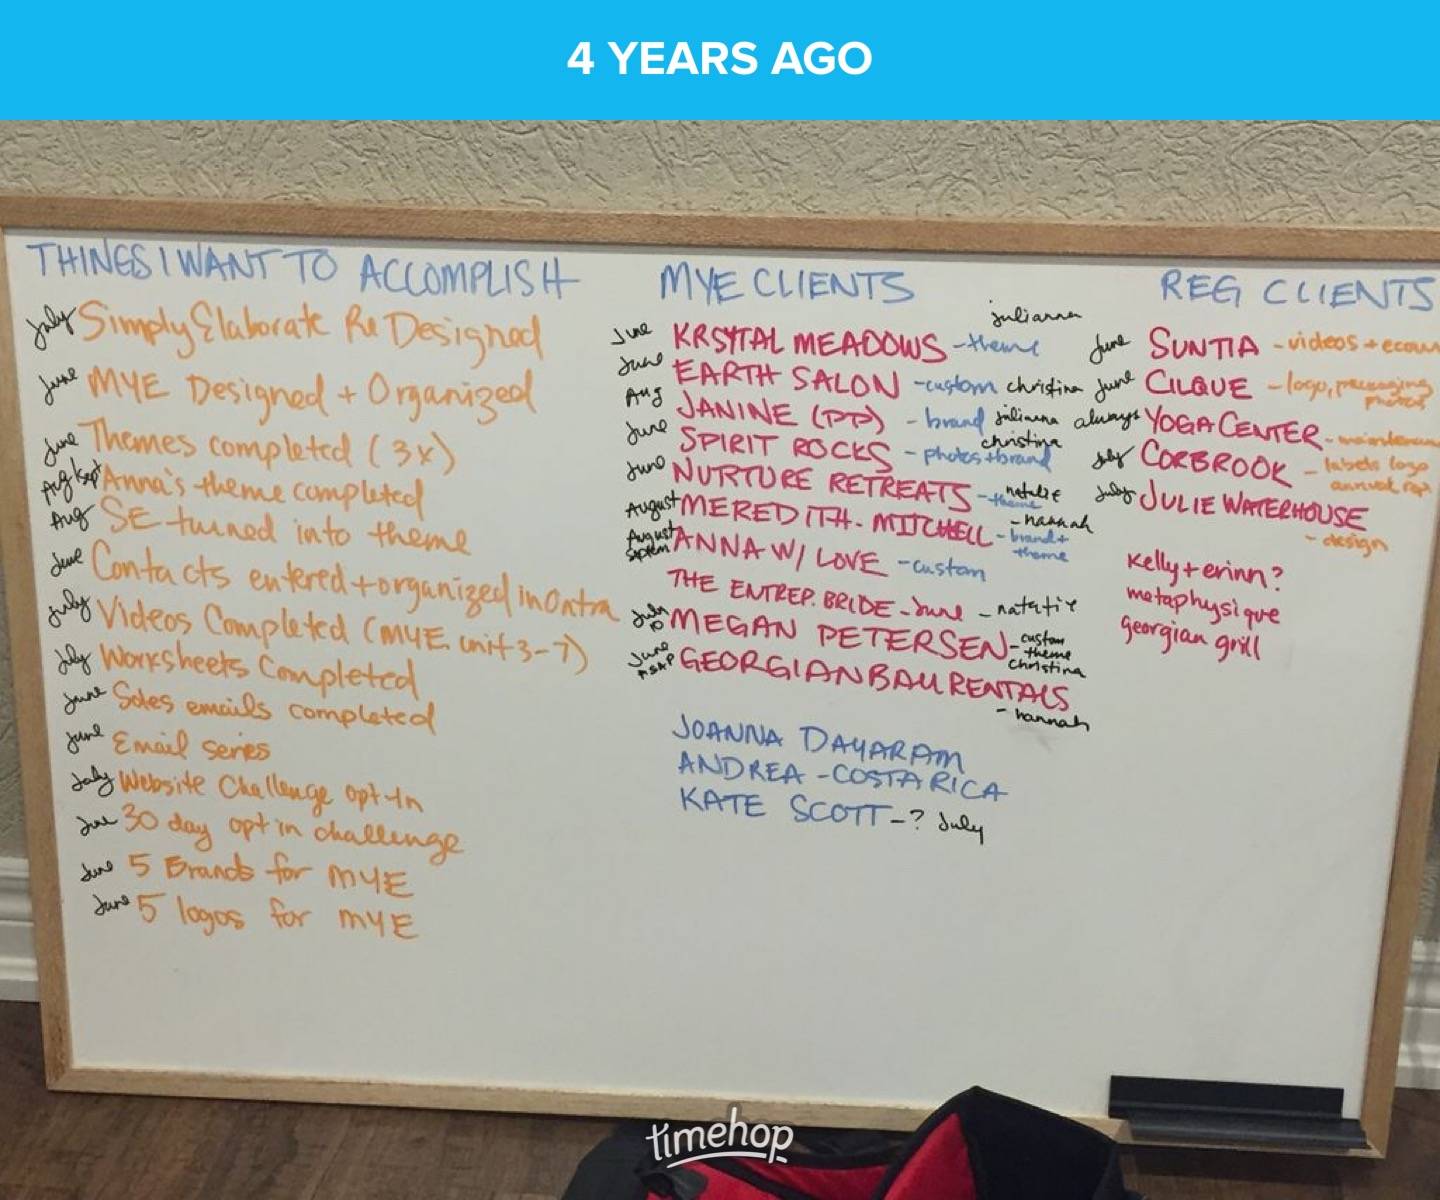 4 YEARS AGO
THINGS I WANT TO ACCOMPLISH
July Simply Elaborate ReDesigned
June MYE Designed + Organized
June Themes completed (3x)
Aug Anna's theme completed
Aug SE turned into theme
June Contacts entered + organized in Ontra
July Videos Completed (MYE unit 3-7)
July Worksheets Completed
June Sales emails completed
June Email series
July Website Challenge opt-In
June 30 day opt in challenge
June 5 Brands for MYE
June 5 logos for MYE
MYE CLIENTS
julianna
June KRSYTAL MEADOWS - theme
June EARTH SALON - custom christina
Aug JANINE (PP) - brand julianna
christina
June SPIRIT ROCKS - photos + brand
June NURTURE RETREATS - theme natalie
August MEREDITH. MITCHELL - hannah
- brand + theme
August Septem ANNA W/ LOVE - custom
THE ENTREP. BRIDE - June - natalie
July 10 MEGAN PETERSEN - custom theme
christina
June ASAP GEORGIAN BALL RENTALS
- hannah
JOANNA DAYARAM
ANDREA - COSTA RICA
KATE SCOTT - ? July
REG CLIENTS
June SUNTIA - videos + ecom
June CILQUE - logo, packaging
photos
always YOGA CENTER - maintenan
July CORBROOK - labels logo
annual rep
July JULIE WATERHOUSE
- design
Kelly + erinn?
metaphysique
georgian grill
timehop